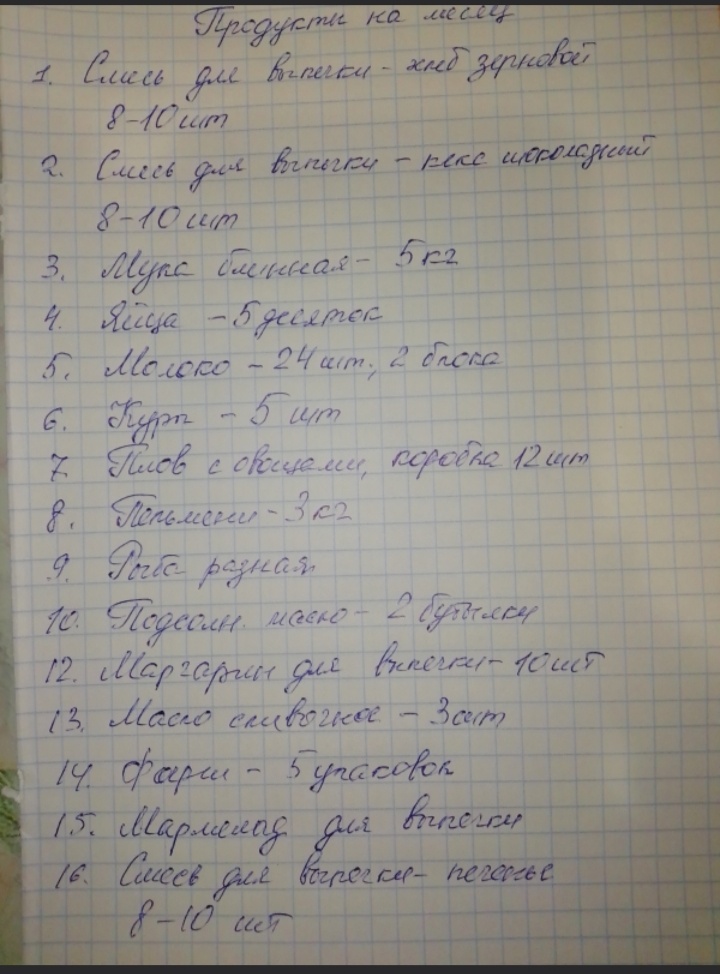 Продукты на месяц
1. Смесь для выпечки - хлеб зерновой
8-10 шт
2. Смесь для выпечки - кекс шоколадный
8-10 шт
3. Мука блинная - 5 кг
4. Яйца - 5 десяток
5. Молоко - 24 шт., 2 блока
6. Куры - 5 шт
7. Плов с овощами, коробка 12 шт
8. Пельмени - 3 кг
9. Рыба разная
10. Подсолн. масло - 2 бутылки
12. Маргарин для выпечки - 10 шт
13. Масло сливочное - 3 шт
14. Фарш - 5 упаковок
15. Мармелад для выпечки
16. Смесь для выпечки - печенье
8-10 шт